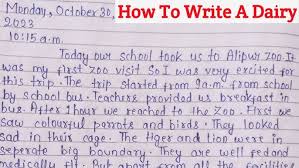 Monday, October 30,
2023
How To Write A Dairy
10:15 a.m.
Today our school took us to Alipur zoo. It
was my first zoo visit. So I was very excited for
this trip. The trip started from 9 a.m. from school
by school bus. Teachers provided us breakfast in
bus. After 1 hour we reached to the Zoo. First we
saw colourful parrots and birds. They looked
sad in their cage. The tiger and lion were in
seperate big boundary. They are well feed and
medically fit. But apart from all the facilities